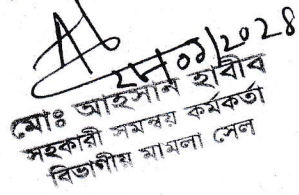 ০১/২০২৪
মোঃ আহসান হাবীব
সহকারী সমন্বয় কর্মকর্তা
বিভাগীয় মামলা সেল